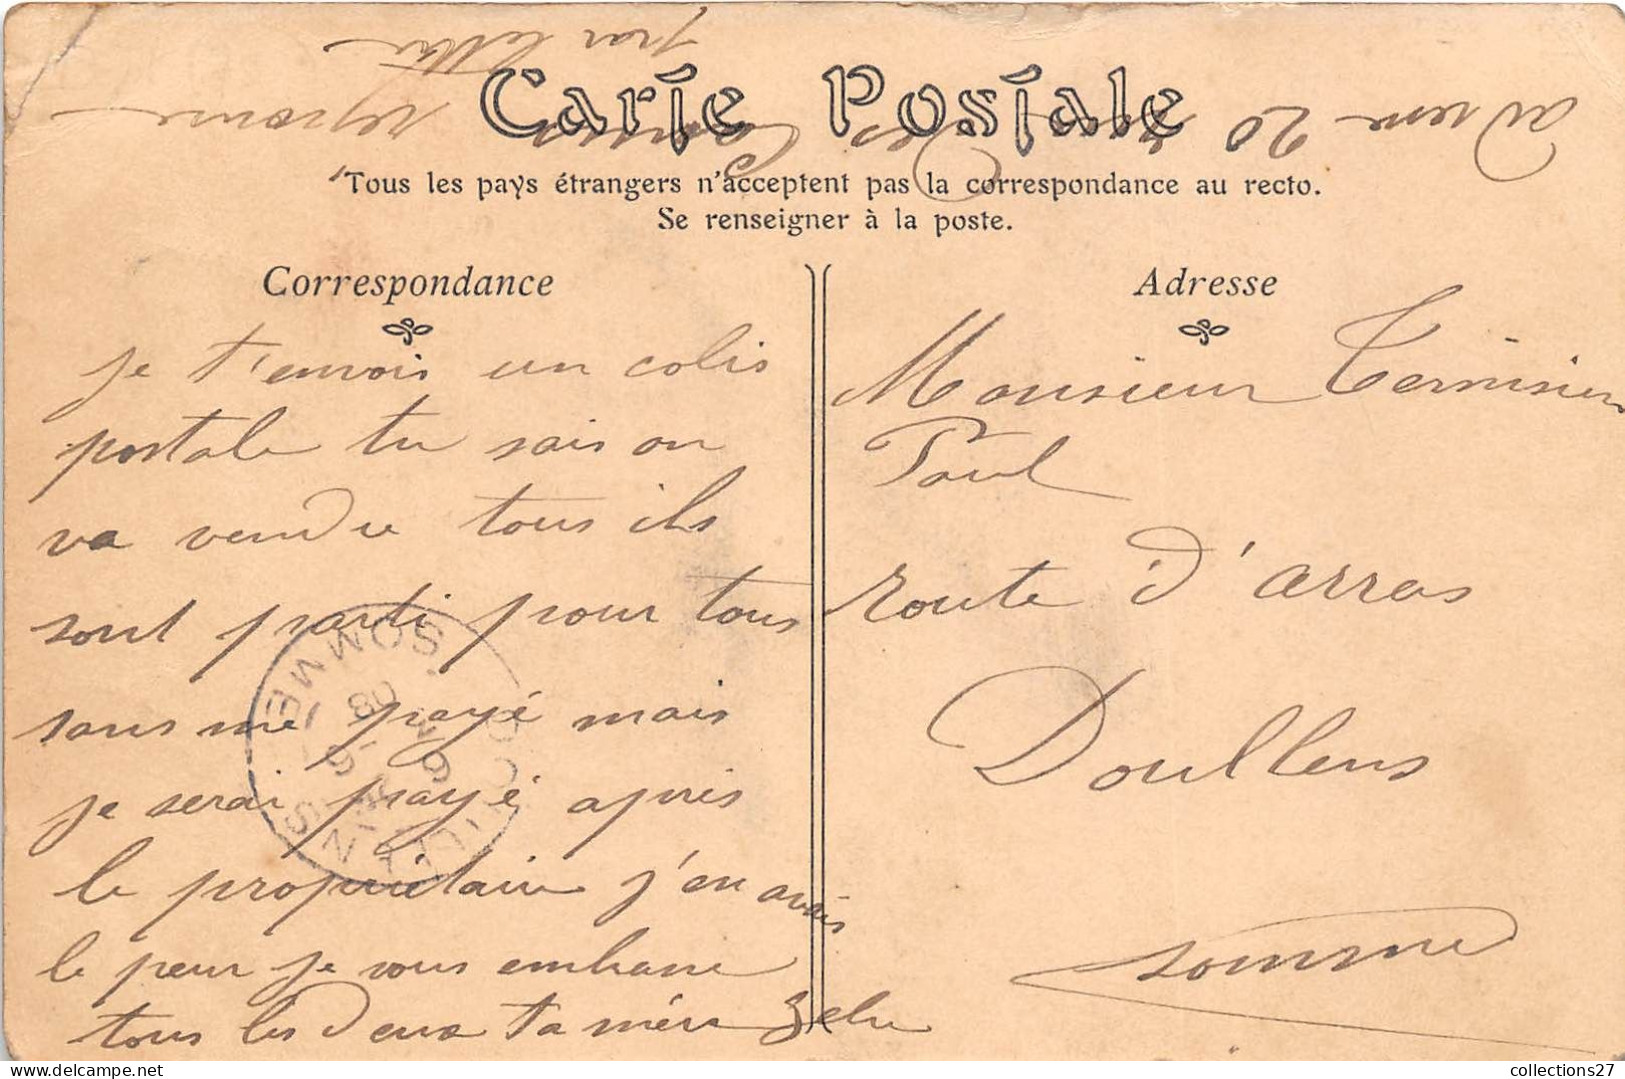 Carte Postale
Tous les pays étrangers n'acceptent pas la correspondance au recto.
Se renseigner à la poste.
Correspondance
je t'envois un colis
postale tu sais on
va vendre tous ils
sont parti pour tous
sans me payé mais
je serai payé apris
le propriétaire j'en avais
le peur je vous embrasse
tous les deux ta mère Zelie
Adresse
Monsieur Ternisien
Paul
route d'arras
Doullens
somme
20
reponse
par lettre
DOULLENS
SOMME
08
collections27